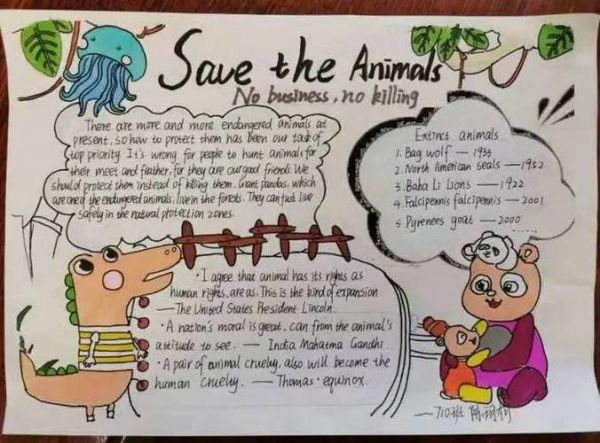 Save the Animals
No business, no killing
There are more and more endangered animals at
present, so how to protect them has been our task of
top priority. It's wrong for people to hunt animals for
their meet and feather, for they are our good friends. We
should protect them instead of killing them. Giant pandas, which
are one of the endangered animals, live in the forests. They can just live
safely in the natural protection zones.
Extinct animals
1. Bag wolf — 1933
2. North American seals — 1952
3. Baba Li Lions — 1922
4. Falcipennis falcipennis — 2001
5 Pyreners goat — 2000
· I agree that animal has its rights as
human rights, are as. This is the kind of expansion
— The United States President Lincoln.
· A nation's moral is great, can from the animal's
attitude to see. — India Mahatma Gandhi
· A pair of animal cruelty, also will become the
human cruelty. — Thomas · equinox.
— 710班 陈